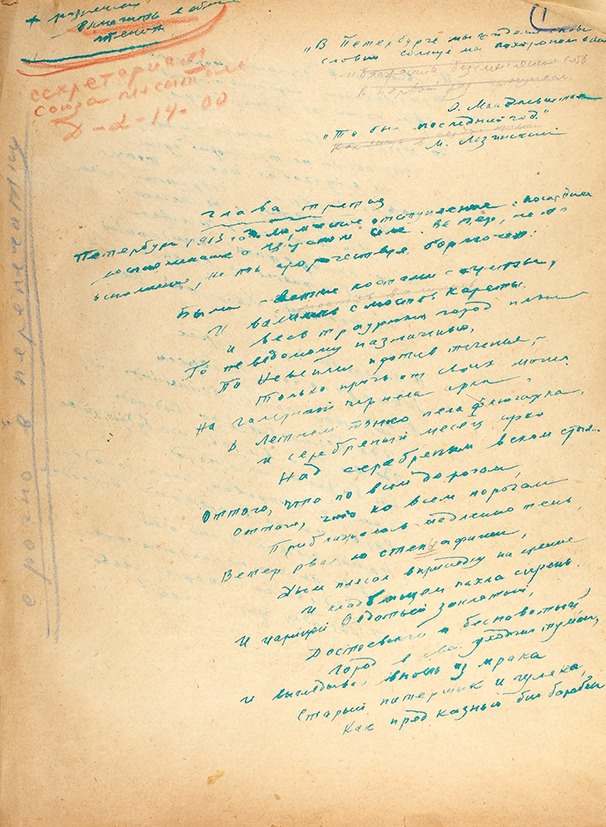 + разрешение
включить в
1
секретариат
Союза писателей
Д-2-14-00
срочно в перепечатку
"В Петербурге мы сойдемся снова
словно солнце мы похоронили в нем
О. Мандельштам
"То был последний год."
М. Лозинский
глава третья
Петербург 1913 года. Лирическое отступление: последнее
воспоминание о Царском Селе. Ветер, не то
вспоминая, не то пророчествуя бормочет:
Были святки кострами согреты,
И валились с мостов кареты,
И весь траурный город плыл
По неведомому назначенью,
По Неве иль против теченья, —
Только прочь от своих могил.
На Галерной чернела арка,
В Летнем тонко пела флюгарка,
и серебряный месяц ярко
Над серебряным веком стыл..
Оттого, что по всем дорогам,
Оттого, что ко всем порогам
Приближалась медленно тень,
Ветер рвал со стен афиши,
Дым плясал вприсядку на крыше
И кладбищем пахла сирень.
И царицей Авдотьей заклятый,
Достоевский и бесноватый,
Город в свой уходил туман,
И выглядывал вновь из мрака
Старый питерщик и гуляка,
Как пред казнью бил барабан